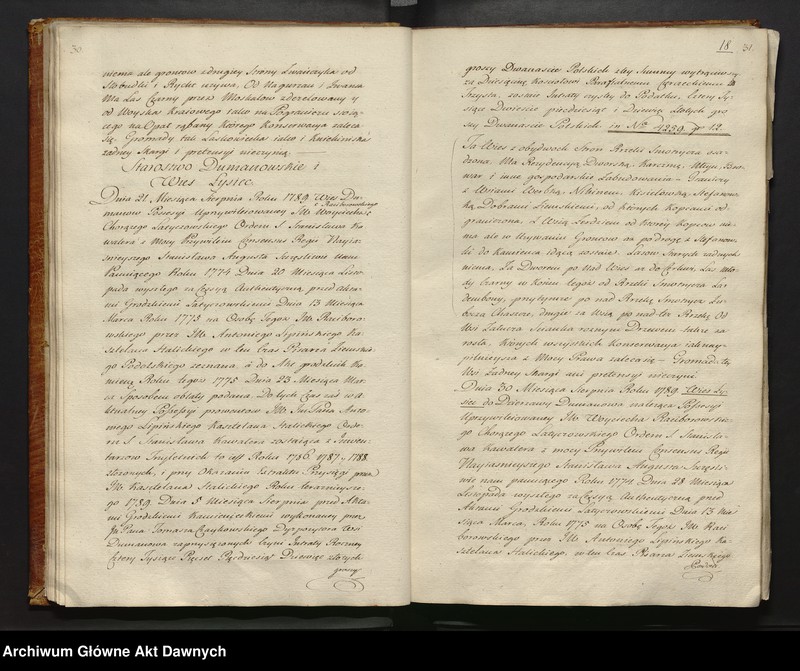 30
niema ale gruntow z drugiey Strony Zwańczyka od
Słobudki i Rychty używa, Od Nagurzan i Iwana
Ma Las Czarny przez Moskalow zdezelowany y
od Woyska Kraiowego tako na Pograniczu stoią-
cego na Opał rąbany Którego Konserwacya zaleca
się. Gromady tak Laskowiecka iako i Kniehininska
żadney Skargi i pretensyi nieczynią
Starostwo Dumanowskie i
Wieś Łysiec
Dnia 21 Miesiąca Sierpnia Roku 1789 Wieś Du-
manow Possesyi Uprzywileiowaney JW Woyciecha Raciborowskiego
Chorążego Latyczowskiego Orderu S Stanisława Ka-
walera z Mocy Przywileiu Consensus Regii Nayia-
śnieyszego Stanisława Augusta Szczęśliwie nam
Panuiącego Roku 1774 Dnia 28 Miesiąca Listo-
pada wyszłego za Cessyą Authentyczną przed akta-
mi Grodzkiemi Latyczowskiemi Dnia 13 Miesiąca
Marca Roku 1775 na Osobę Tegoż JW Racibor-
owskiego przez JW Antoniego Lipińskiego Ka-
sztelana Halickiego w ten czas Pisarza Ziemskie-
go Podolskiego zeznaną a do Akt grodzkich Ka-
mienc. Roku tegoż 1775 Dnia 23 Miesiąca Mar-
ca Sposobem oblaty podaną. Do tych Czas zaś w a-
ktualney Possessyi prowentow JW Jmć Pana Anto-
niego Lipińskiego Kasztelana Halickiego Orde-
ru S Stanisława Kawalera zostaiąca z Inwen-
tarzow Trzyletnich to iest Roku 1786 1787 y 1788
złożonych, i przy Okazaniu Extraktu Przysięgi przez
JW Kasztelana Halickiego Roku teraźnieysze-
go 1789 Dnia 5 Miesiąca Sierpnia przed Akta-
mi Grodzkiemi Kamienieckiemi wykonaney przez
Pana Tomasza Czaykowskiego Dyspozytora Wsi
Dumanowa zaprzysiężonych czyni Intraty Roczney
Cztery Tysiące Pięset Pięćdziesiąt Dziewięć złotych
groszy
18 31
groszy Dwanaście Polskich z tey Summy wytrąciwszy
za Dziesięcinę Kosciołowi Parafialnemu
Trzysta, zostaie Intraty czystey do Podatku, Cztery Ty-
siące Dwieście pięćdziesiąt i Dziewięć złotych gro-
szy Dwanaście Polskich in No 4259 gr 12
Ta Wieś z obydwoch Stron Rzeki Smotrycza osa-
dzona Ma Rezydencyą Dworską, Karczmę, Młyn, Bro-
war i inne gospodarskie Zabudowania - Graniczy
z Wsiami Werbką, Nihinem, Kisielowką, Stefanow-
ką Dobrami Ziemskiemi, od których Kopcami od-
graniczona, z Wsią Łesdziem od Ktorey kopcow nie-
ma ale w Używaniu Gruntow aż po drogę z Stefanow-
ki do Kamieńca idącą zostaie. Lasow starych żadnych
niema, Za Dworem po Nad Wieś aż do Czołun, Las mło-
dy Czarny w Koniu legoż od Rzeki Smotrycza La-
dembony, przytymże po nad Rzeką Smotrycz Lu-
boza Chaszcze, drugie za Wsią po nad tą Rzeką Od
Wsi Zalucza Swianka rożnym Drzewem także za-
rosta, których wszystkich Konserwacya iak nay-
pilnieysza z Mocy Prawa zaleca się - Gromada tey
Wsi żadney Skargi ani pretensyi nieczyni
Dnia 30 Miesiąca Sierpnia Roku 1789 Wieś Ły-
siec do Dzierżawy Dumanowa należąca Possesyi
Uprzywileiowaney JW Woyciecha Raciborowskie-
go Chorążego Latyczowskiego Orderu S Stanisła-
wa Kawalera z mocy Przywileiu Consensus Regii
Nayiaśnieyszego Stanisława Augusta Szczęśli-
wie nam panuiącego Roku 1774 Dnia 28 Miesiąca
Listopada wyszłego za Cessyą Authentyczną przed
Aktami Grodzkiemi Latyczowskiemi Dnia 13 Mie-
siąca Marca, Roku 1775 na Osobę Tegoż JW Raci-
borowskiego przez JW Antoniego Lipińskiego Ka-
sztelana Halickiego, w ten Czas Pisarza Ziemskiego
Podol.
Archiwum Główne Akt Dawnych